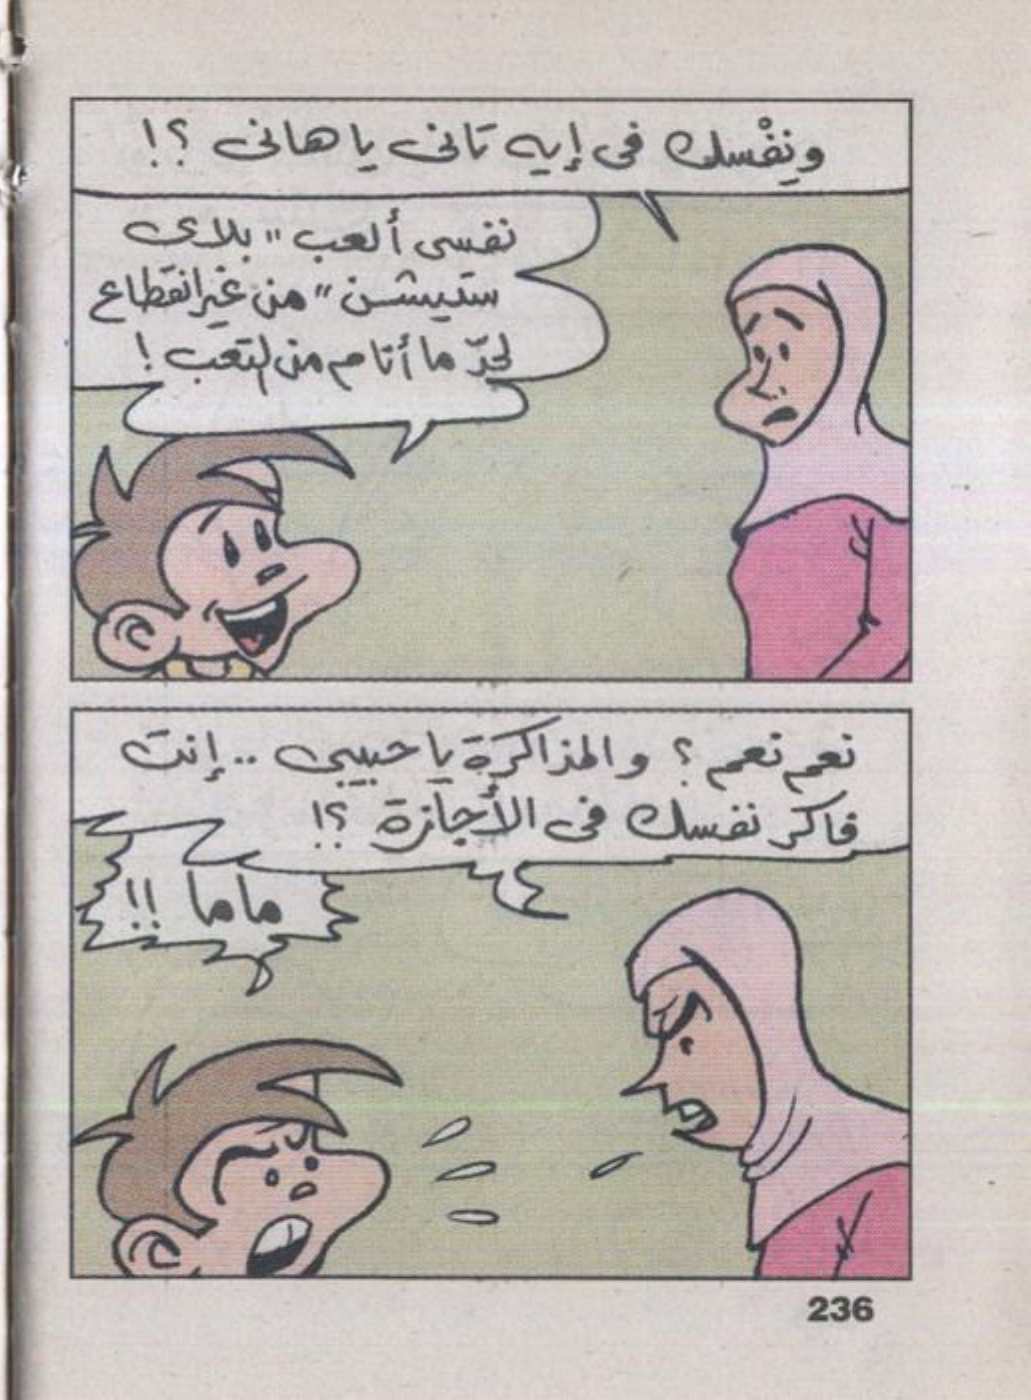 ونِفْسك فى إيه تانى يا هانى ؟!
نفسى ألعب " بلاى
ستيشن " من غير انقطاع
لحدّ ما أنام من التعب !
نعم نعم ؟ والمذاكرة يا حبيبى .. إنت
فاكر نفسك فى الأجازة ؟!
ماما !!
236